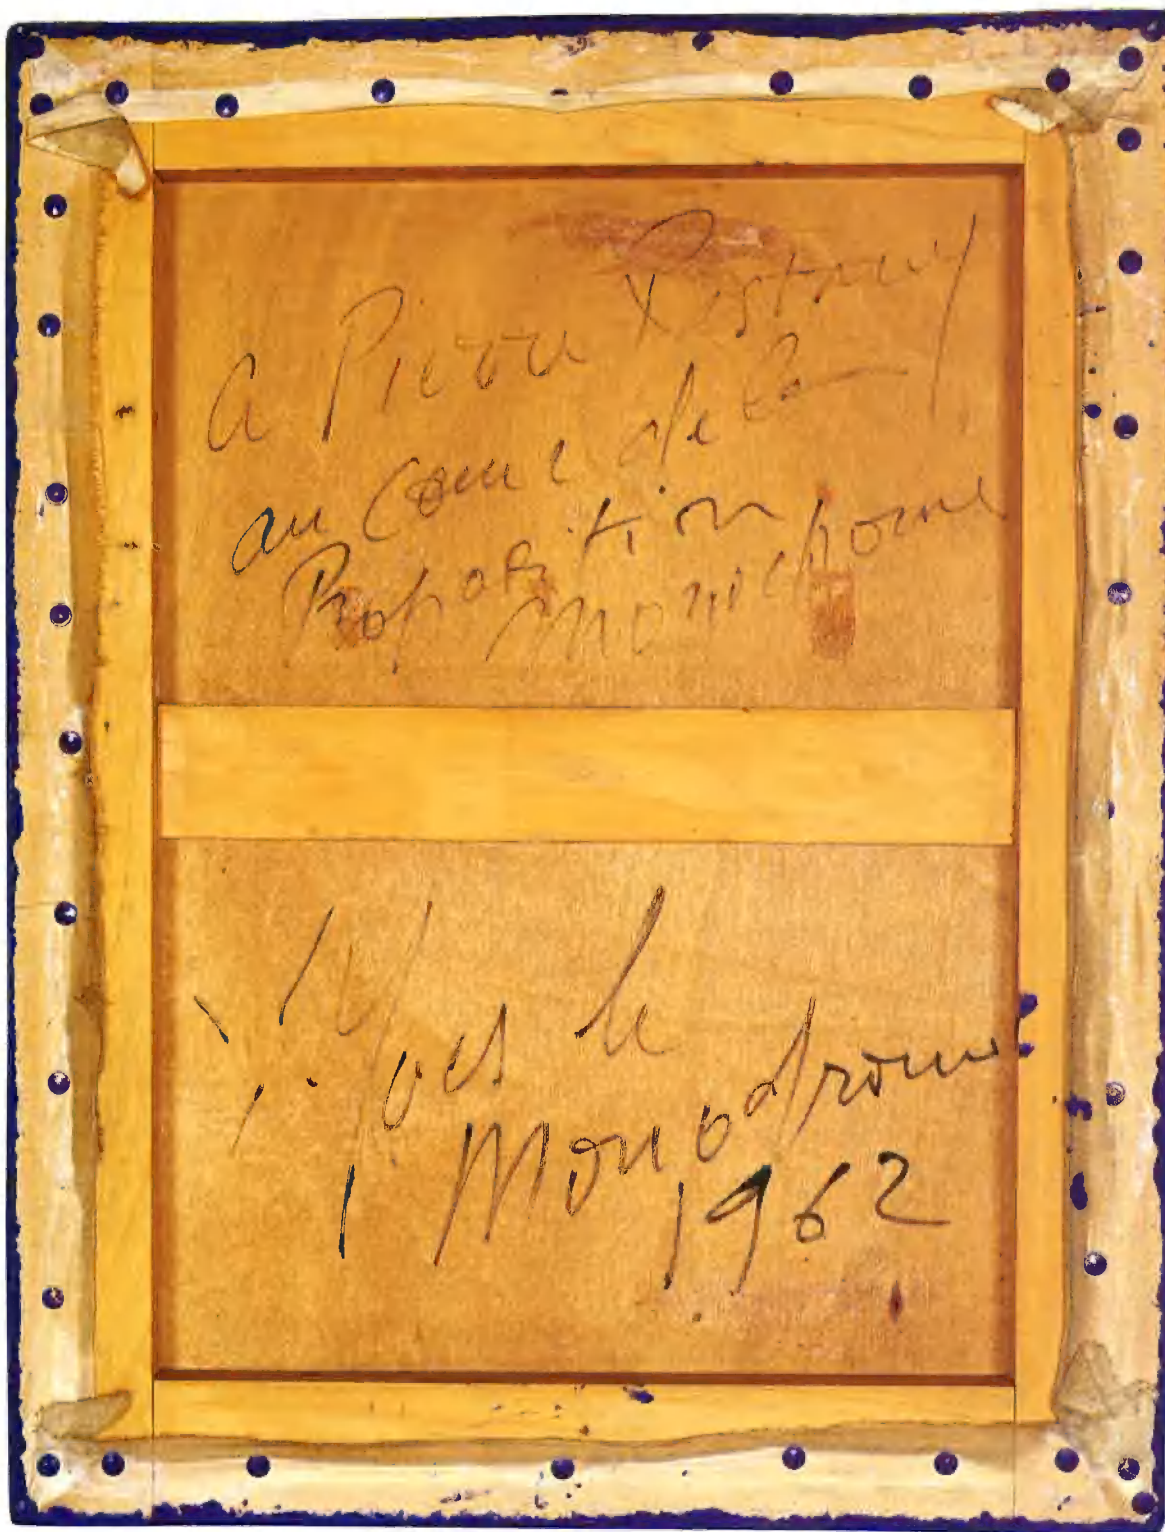 A Pierre Restany
au coeur de la
Proposition
monochrome
Yves le
Monochrome
1962